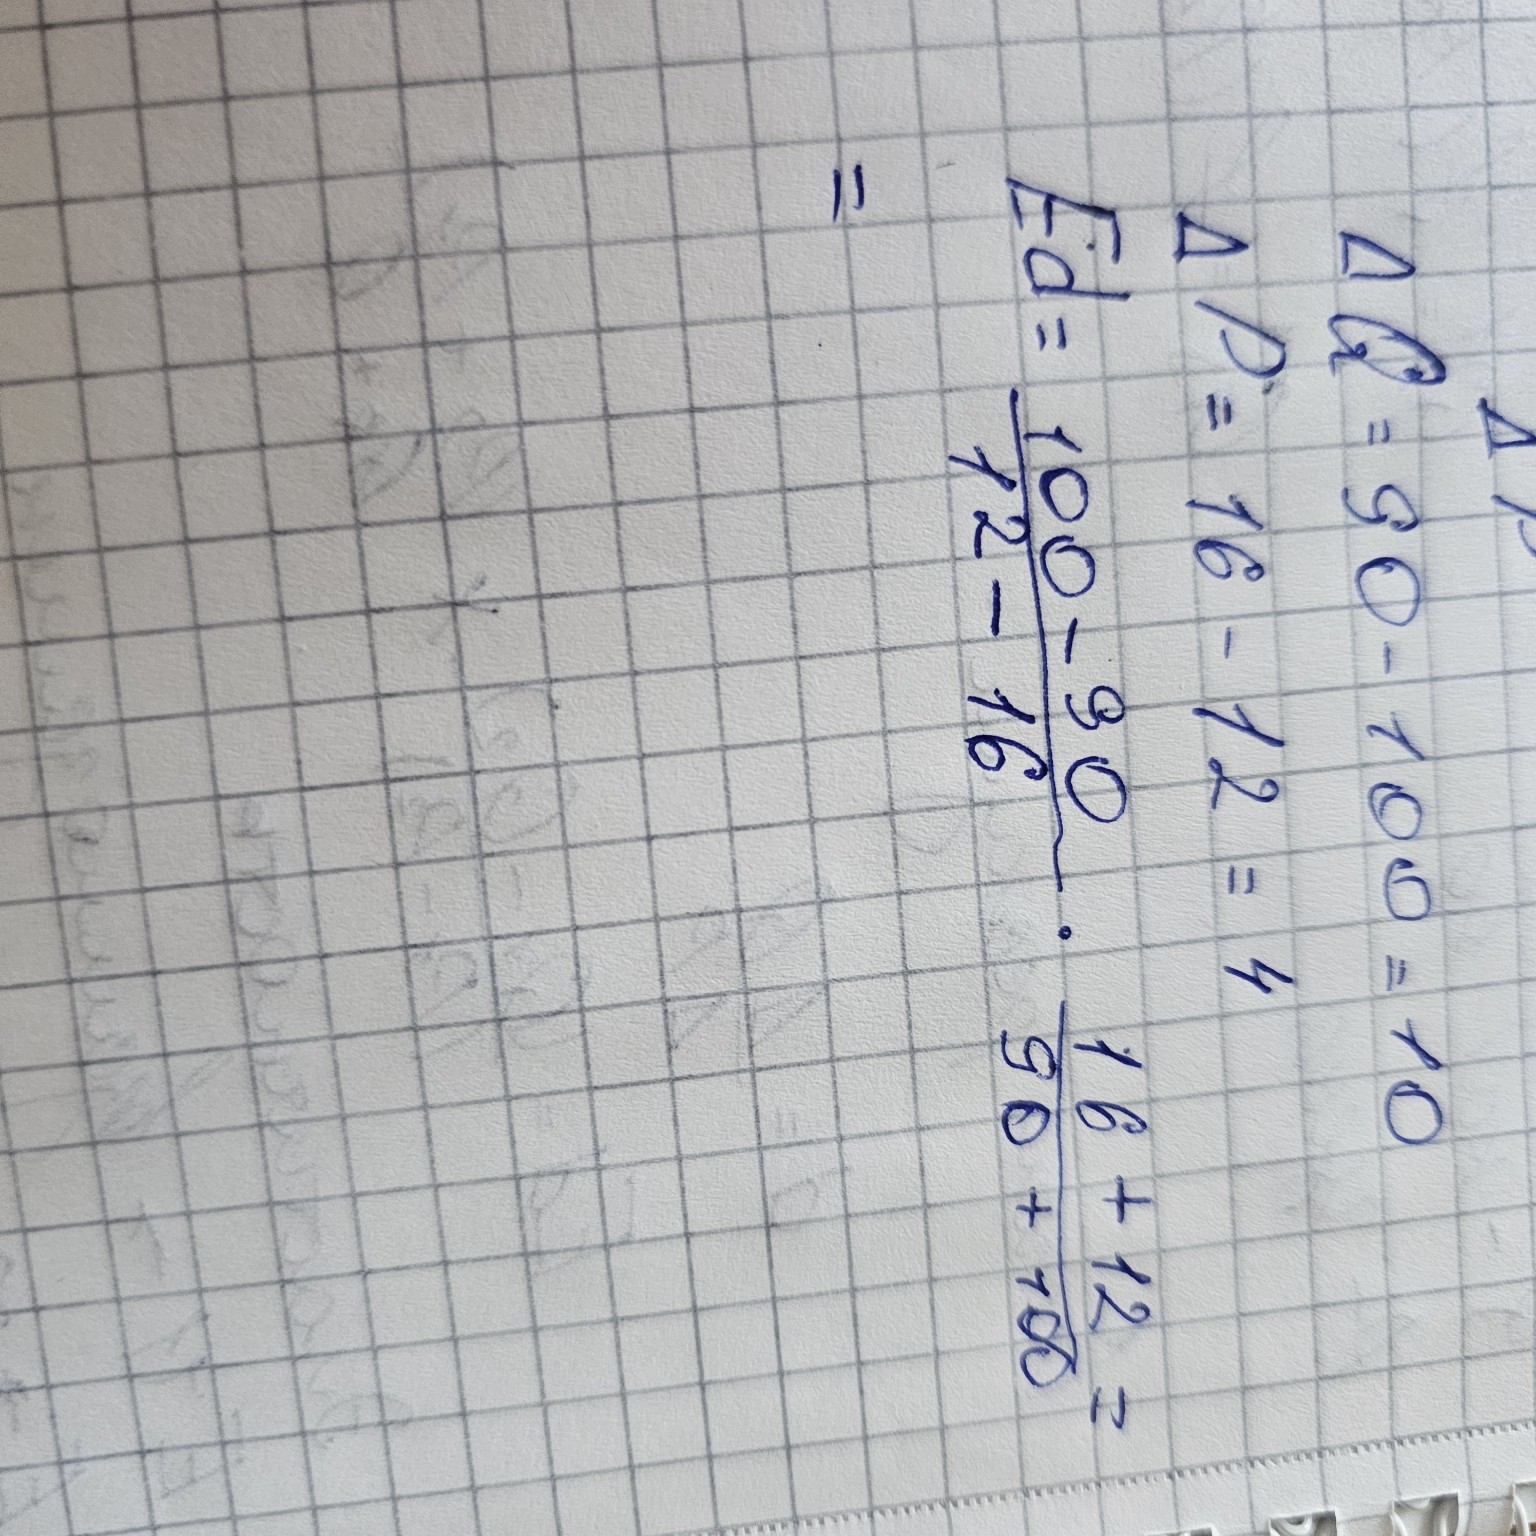 Δ P
Δ Q = 90 - 100 = 10
Δ P = 16 - 12 = 4
Ed = 100 - 90 / 12 - 16 · 16 + 12 / 90 + 100 =
=